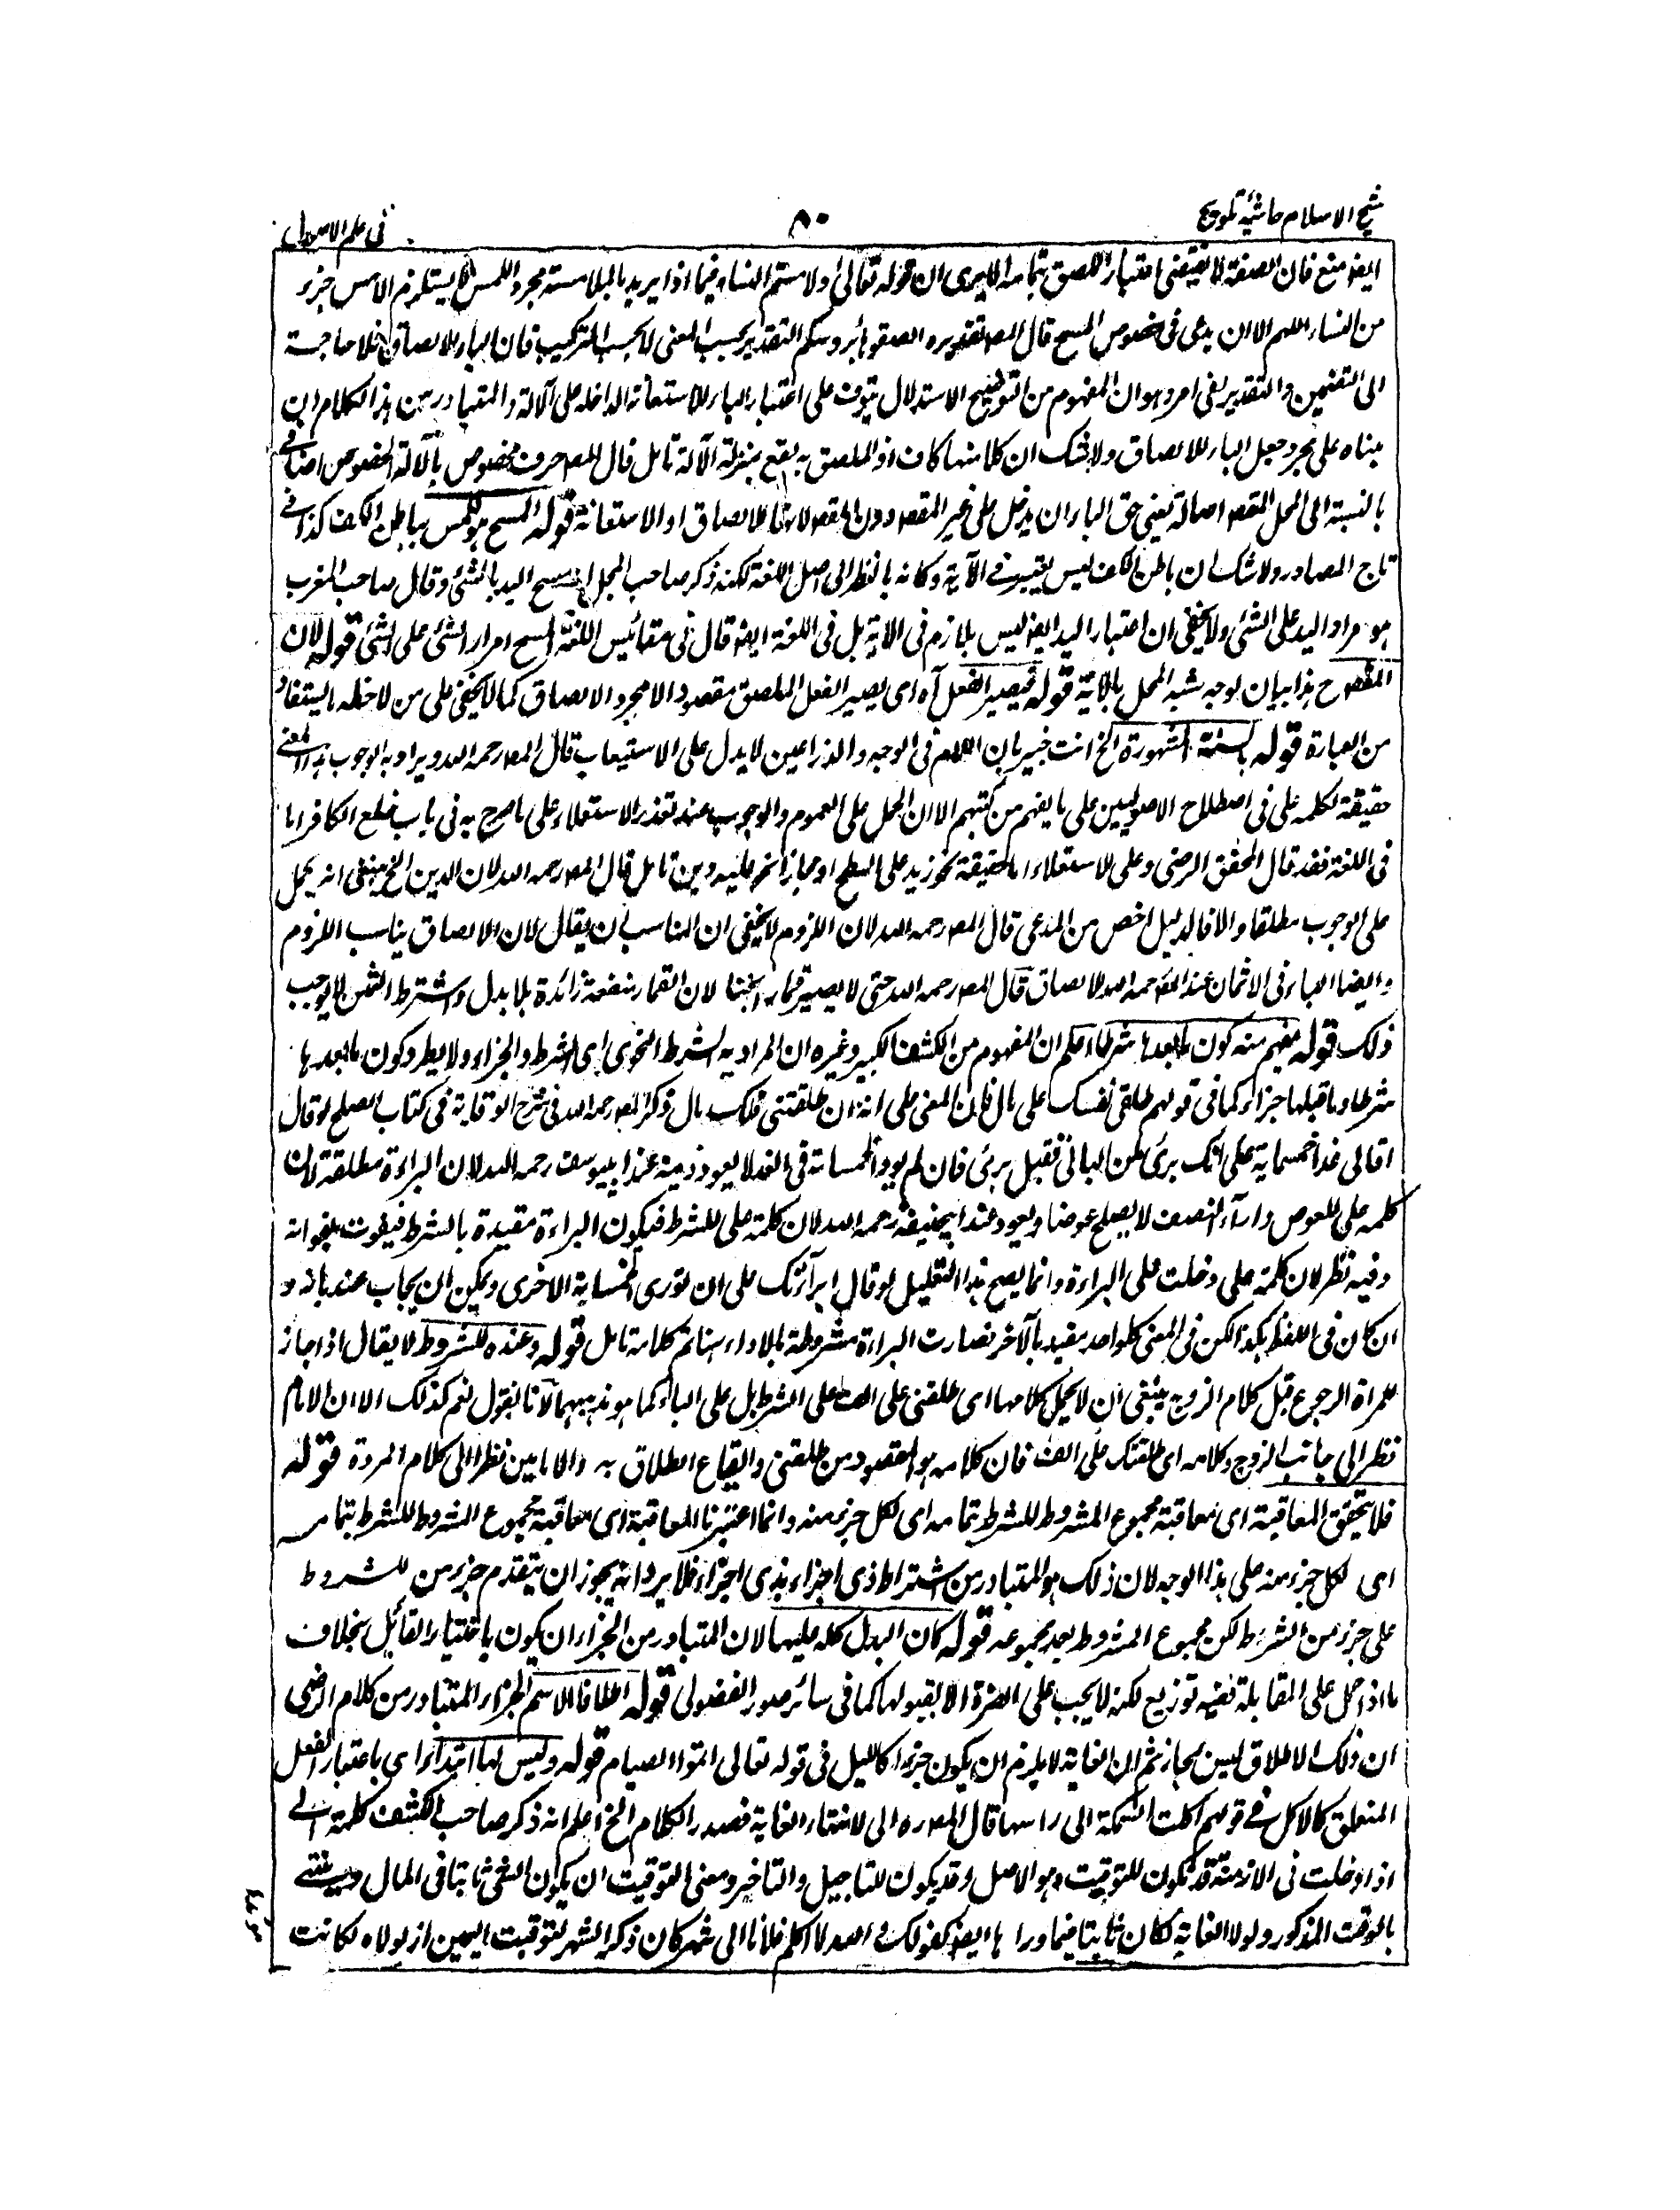 شيخ الاسلام حاشية تلويح
٨٠
فى علم الاصول
ايضا منع فان الصفة لا تقتضى اعتبار الملصق بتمامه الا يرى ان قوله تعالى او لامستم النساء فيما اذا يريد بالملامسة مجرد اللمس لا يستلزم الا مس جزء
من النساء اللهم الا ان يدعى فى خصوص المسح قال المصـ تقديره الصقوها برؤسكم التقدير بحسب المعنى لا بحسب التركيب فان الباء للالصاق فلا حاجة
الى التضمين والتقدير بقى امر وهو ان المفهوم من التوضيح الاستدلال يتوقف على اعتبار الباء للاستعانة الداخلة على الآلة والمتبادر من هذا الكلام ان
مبناه على مجرد جعل الباء للالصاق ولا شك ان كلا منها كاف اذ الملصق به يقع بمنزلة الآلة تامل قال المصـ حرف مخصوص بالآلة الخصوص اضافى
بالنسبة الى المحل المقصـ اصالة يعنى حق الباء ان يدخل على غير المقصـ دون المقصـ لانها للالصاق او الاستعانة قوله المسح هو اللمس بباطن الكف كذا فى
تاج المصادر ولا شك ان باطن الكف ليس بمعتبر فى الآية وكانه بالنظر الى اصل اللغة لكنه ذكر صاحب المجمل ان مسح اليد بالشئ وقال صاحب المغرب
هو امرار اليد على الشئ ولا يخفى ان اعتبار اليد ايضا ليس بلازم فى الآية بل فى اللغة ايضا قال فى مقائيس اللغة المسح امرار الشئ على الشئ قوله لان
المقصـ ح هذا بيان لوجه شبه المحل بالآلة قوله فيصير الفعل آه اى يصير الفعل الملصق مقصودا لا مجرد الالصاق كما لا يخفى على من لاحظ ما يستفاد
من العبارة قوله بالسنة المشهورة الخ انت خبير بان اللام فى الوجه والذراعين لا يدل على الاستيعاب قال المصـ رحمه الله ويراد به الوجوب هذا المعنى
حقيقة لكلمة على فى اصطلاح الاصوليين على ما يفهم من كتبهم الا ان الحمل على العموم والوجوب عند تعذر الاستعلاء على ما صرح به فى باب خلع الكافر اما
فى اللغة فقد قال المحقق الرضى وعلى للاستعلاء اما حقيقة نحو زيد على السطح او مجازا نحو عليه دين تامل قال المصـ رحمه الله لان الدين الخ ينبغى انه يحمل
على الوجوب مطلقا والا فالدليل اخص من المدعى قال المصـ رحمه الله لان اللزوم لا يخفى ان المناسب ان يقال لان الالصاق يناسب اللزوم
وايضا الباء فى الاثمان عند المصـ رحمه الله للالصاق قال المصـ رحمه الله حتى لا يصير قمارا لان القمار منفعة زائدة بلا بدل واشتراط الثمن لا يوجب
ذلك قوله يفهم منه كون ما بعدها شرطا اعلم ان المفهوم من الكشف الكبير وغيره ان المراد به الشرط النحوى اى الشرط والجزاء ولا يطرد كون ما بعدها
شرطا وما قبلها جزاء كما فى قولهم طلقى نفسك على مال فان المعنى على انه ان طلقتنى فلك مال ذكر المصـ رحمه الله فى شرح الوقاية فى كتاب الصلح لو قال
اد الى غدا خمسماية على انك برئ من الباقى فقبل برئ فان لم يود الخمسمائة فى الغد لا يعود دينه عند ابيوسف رحمه الله لان البراءة مطلقة لان
كلمة على للعوض واداء النصف لا يصلح عوضا ويعود عند ابيحنيفة رحمه الله لان كلمة على للشرط فيكون البراءة مقيدة بالشرط فيفوت بفواته
وفيه نظر لان كلمة على دخلت على البراءة وانما يصح هذا التعليل لو قال ابرأتك على ان تودى الخمسماية الاخرى ويمكن ان يجاب عنه بانه و
ان كان فى اللفظ هكذا لكن فى المعنى كل واحد مقيد بالآخر فصارت البراءة مشروطة بالاداء هنا تم كلامه تامل قوله وعنده للشرط لا يقال اذا جاز
للمرأة الرجوع قبل كلام الزوج ينبغى ان لا يحمل كلامها اى طلقنى على الف على الشرط بل على الباء كما هو مذهبهما لانا نقول نعم كذلك الا ان الامام
نظر الى جانب الزوج وكلامه اى طلقتك على الف فان كلامه هو المقصود من طلقنى وايقاع الطلاق به والامامين نظرا الى كلام المرءة قوله
فلا يتحقق المعاقبة اى معاقبة مجموع المشروط للشرط بتمامه اى لكل جزء منه وانما اعتبرنا المعاقبة اى معاقبة مجموع المشروط للشرط بتمامه
اى لكل جزء منه على هذا الوجه لان ذلك هو المتبادر من اشتراط ذى اجزاء بذى اجزاء فلا يرد انه يجوز ان يتقدم جزء من المشروط
على جزء من الشرط لكن مجموع المشروط بعد مجموعه قوله كان البدل كله عليها لان المتبادر من الجزاء ان يكون باختيار القائل بخلاف
ما اذا حمل على المقابلة ففيه توزيع لكنه لا يجب على الضرة الا بقبولها كما فى سائر صور الفضولى قوله اطلاقا لاسم الجزء المتبادر من كلام الرضى
ان ذلك الاطلاق ليس بمجاز ثم ان الغاية لا يلزم ان يكون جزءا كالليل فى قوله تعالى اتموا الصيام قوله وليس لها ابتداء اى باعتبار الفعل
المتعلق كالاكل فى قولهم اكلت السمكة الى راسها قال المصـ ره الى لانتهاء الغاية فصدر الكلام الخ اعلم انه ذكر صاحب الكشف كلمة الى
اذا دخلت فى الازمنة قد تكون للتوقيت وهو الاصل وقد يكون للتاجيل والتاخير ومعنى التوقيت ان يكون الشئ ثابتا فى الحال وينتهى
بالوقت المذكور ولولا الغاية لكان ثابتا فيما وراءها ايضا كقولك والله لا اكلم فلانا الى شهر كان ذكر الشهر لتوقيت اليمين اذ لولاه لكانت